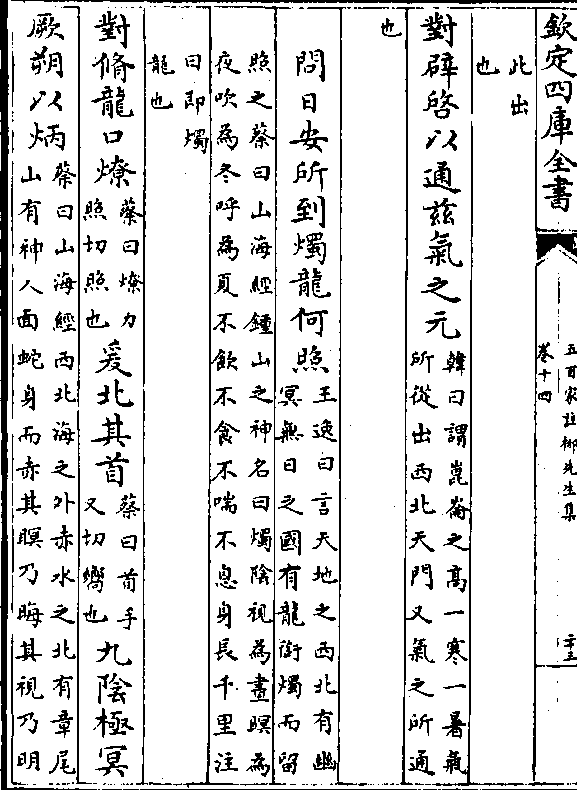 欽定四庫全書
五百家註柳先生集
卷十四
二十三
此出
也
對辟啓以通兹氣之元
韓曰謂崑崙之高一寒一暑氣
所從出西北天門又氣之所通
也
問日安所到燭龍何照
王逸曰言天地之西北有幽
冥無日之國有龍銜燭而留
照之蔡曰山海經鍾山之神名曰燭陰視為晝瞑為
夜吹為冬呼為夏不飲不食不喘不息身長千里注
曰即燭
龍也
對脩龍口燎
蔡曰燎力
照切照也
爰北其首
蔡曰首手
又切嚮也
九陰極冥
厥朔以炳
蔡曰山海經西北海之外赤水之北有章尾
山有神人面蛇身而赤其瞑乃晦其視乃明